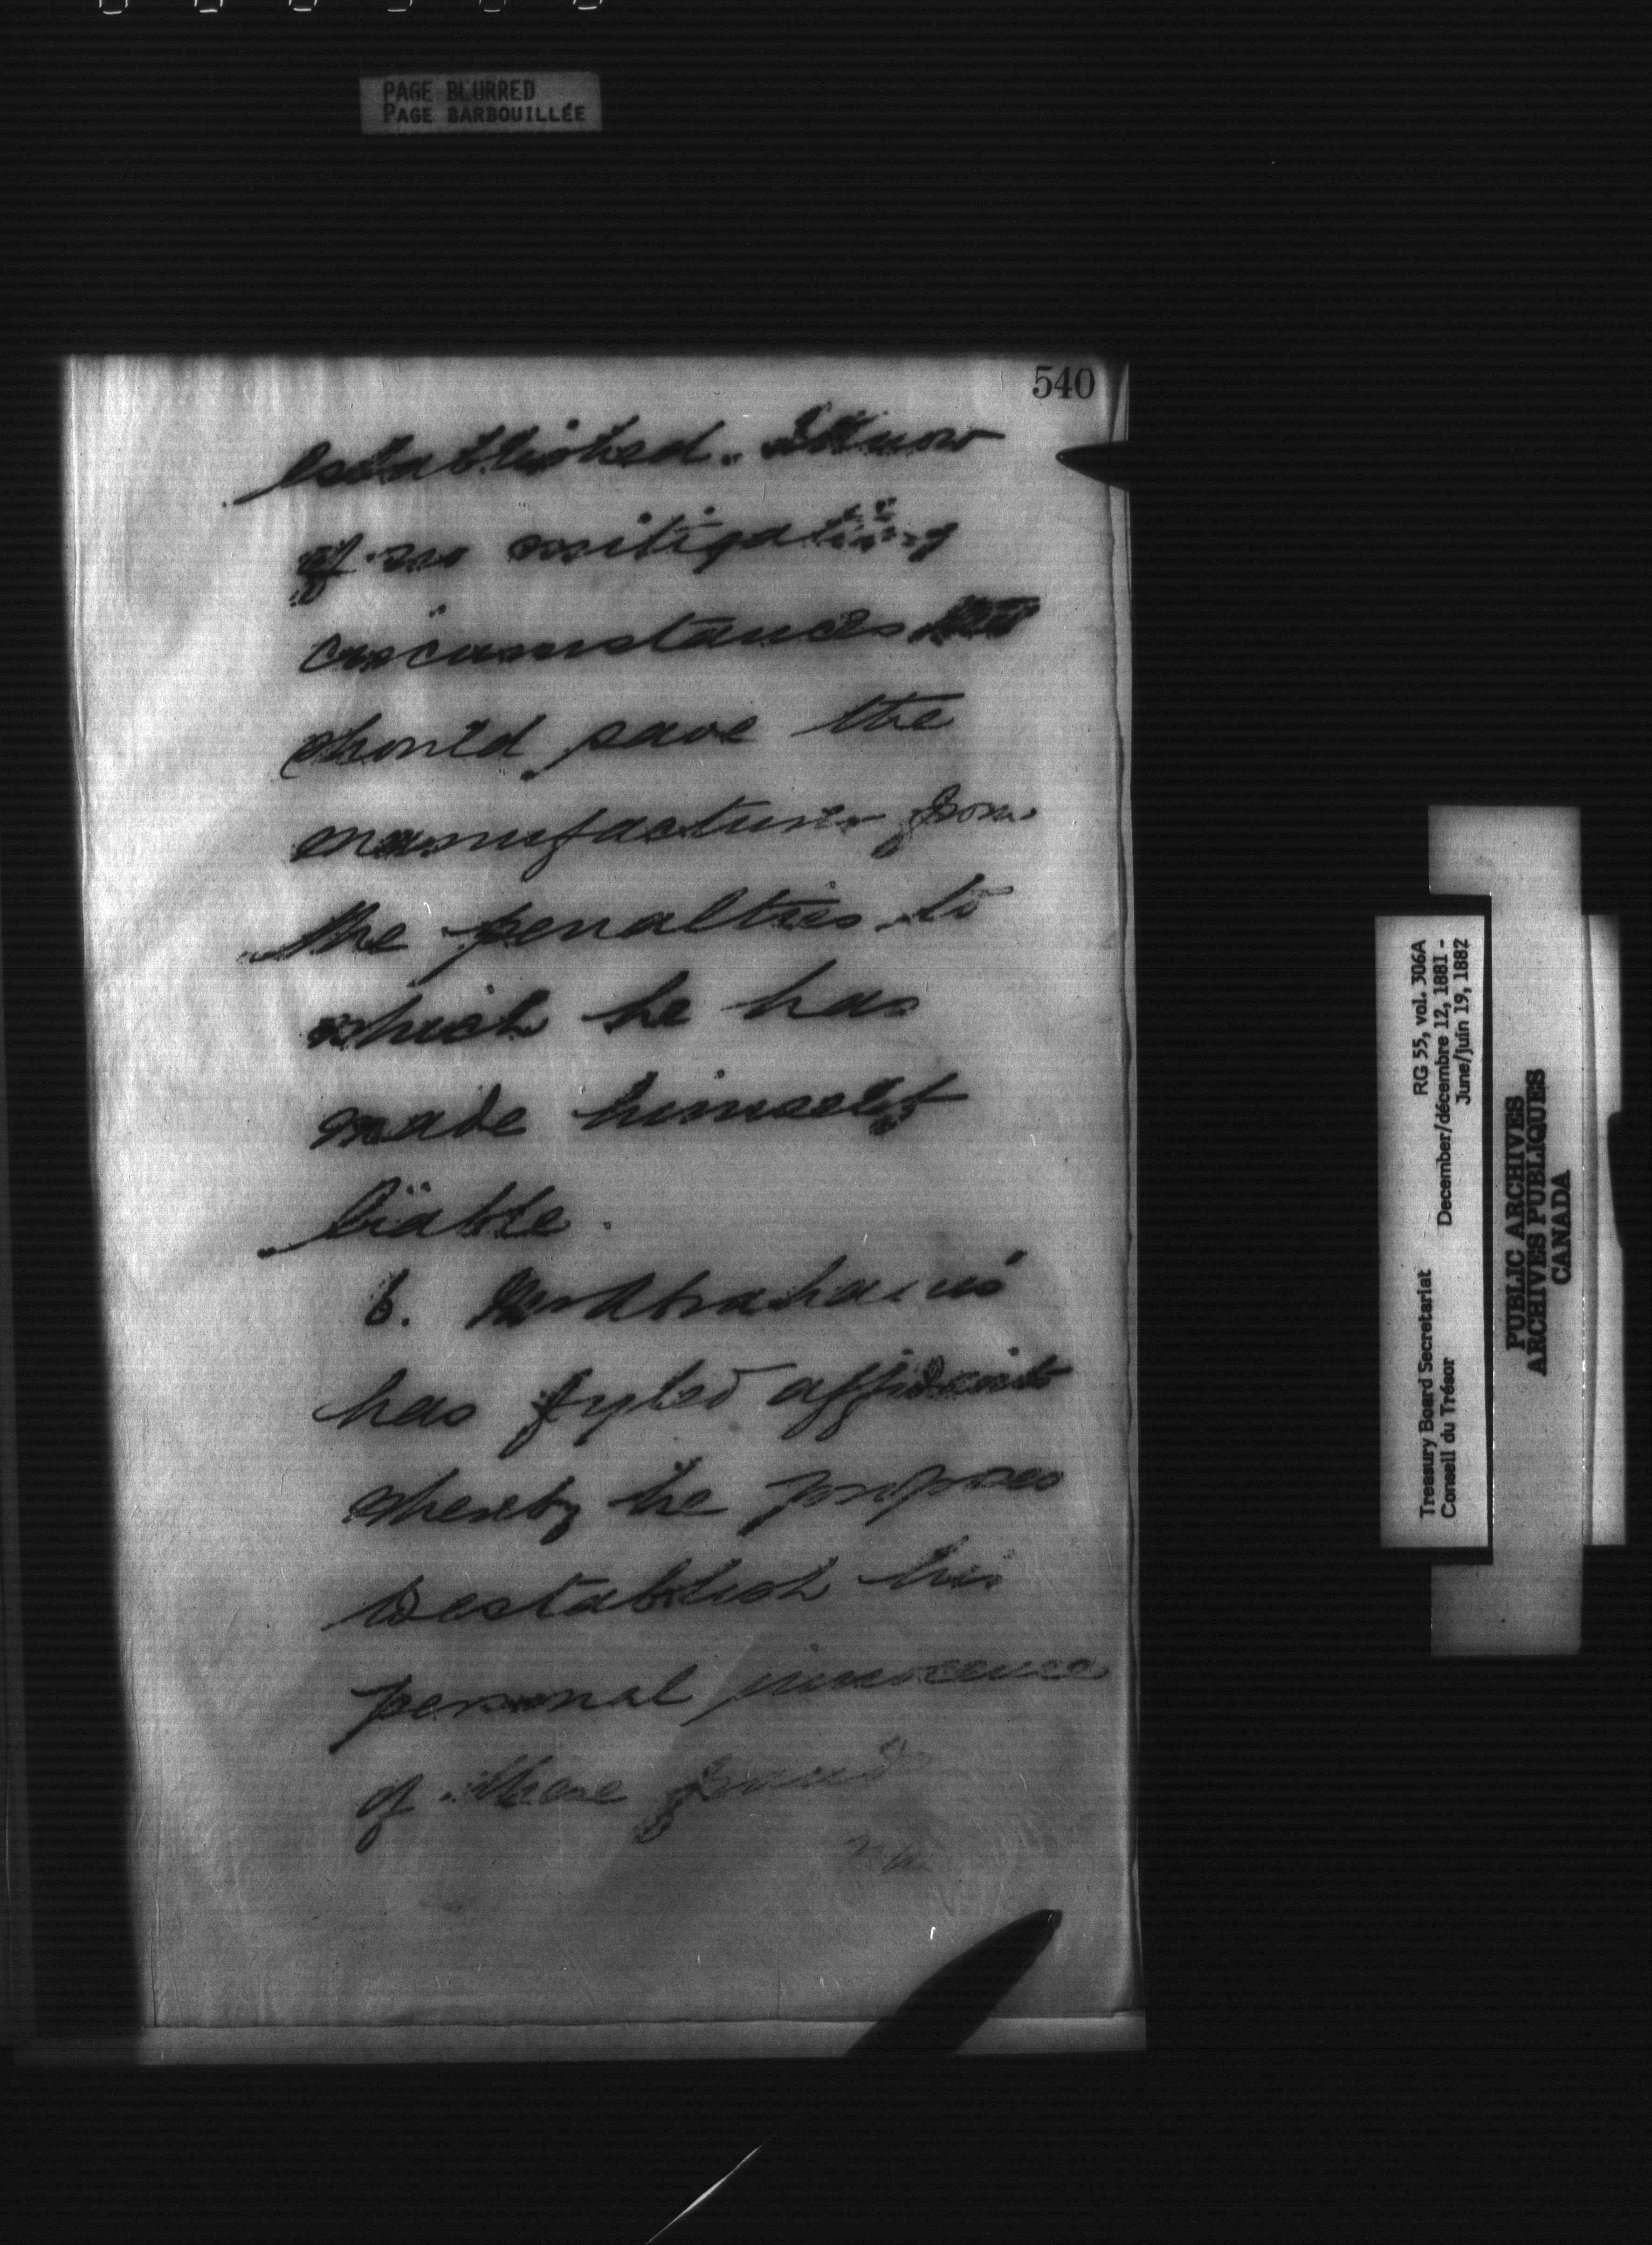 PAGE BLURRED
PAGE BARBOUILLÉE
540
established. I know
of no mitigating
circumstances
should save the
manufacturer from
the penalties to
which he has
made himself
liable.
6. Mr Abrahams
has fyled affidavits
whereby he proposes
to establish his
personal innocence
of these frauds
Treasury Board Secretariat RG 55, vol. 306A
Conseil du Trésor December/décembre 12, 1881 -
June/juin 19, 1882
PUBLIC ARCHIVES
ARCHIVES PUBLIQUES
CANADA